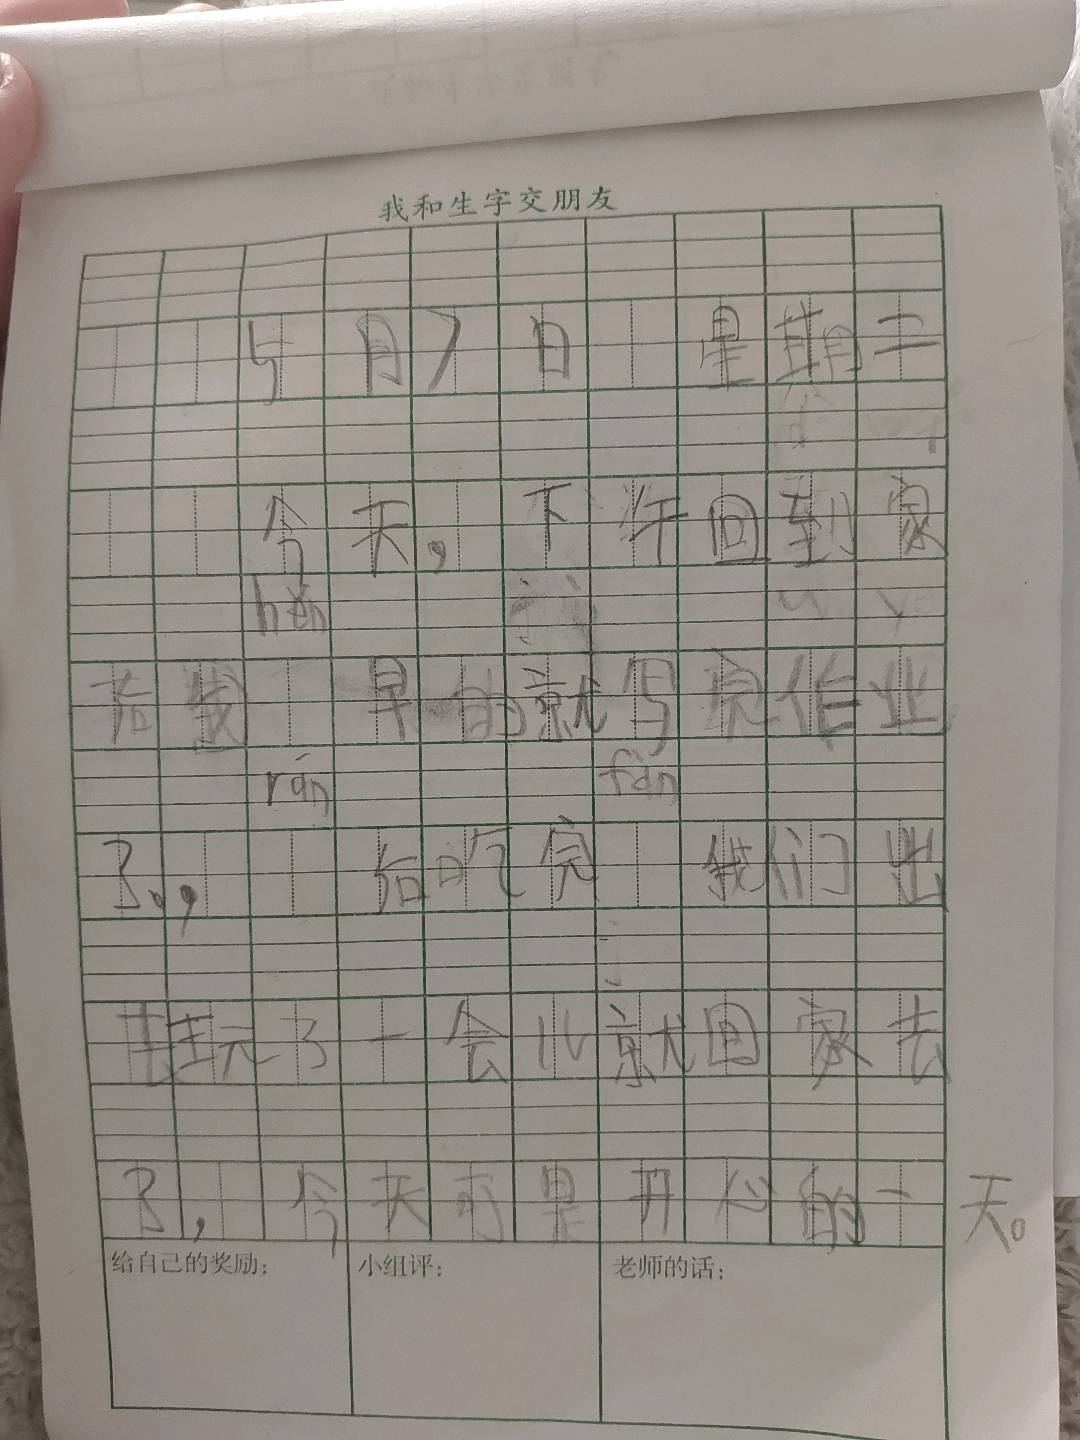 我和生字交朋友
5月7日 星期二
今天,下午回到家
hěn
早的就写完作业
rán fàn
了。, 后吃完 我们出
去玩了一会儿就回家去
了,今天可是开心的一天。
给自己的奖励: 小组评: 老师的话: